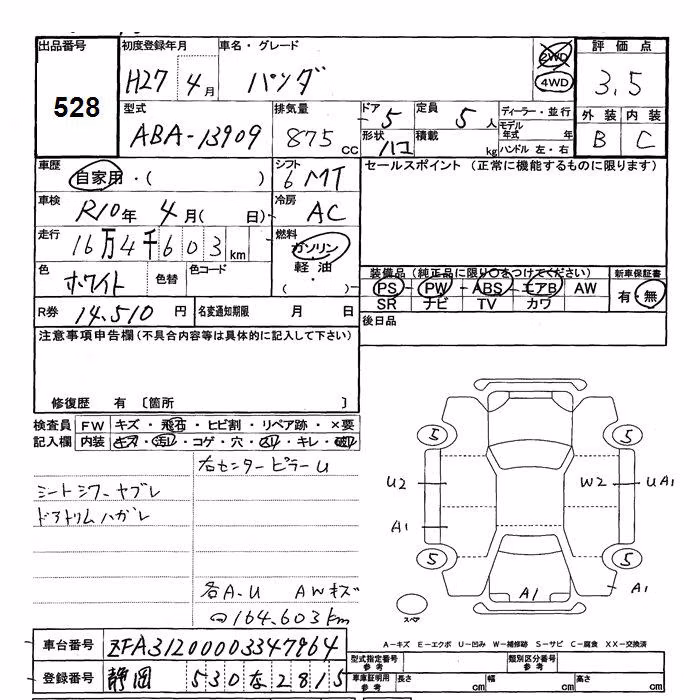 出品番号 初度登録年月 車名・グレード 評価点
528 H27 4月 パンダ 2WD 4WD 3.5
型式 排気量 ドア 定員 ディーラー・並行 外装 内装
ABA-13909 875cc 5 5人 モデル年式 年 B C
形状 ハコ 積載 kg ハンドル 左・右
車歴 自家用・( ) シフト 6MT セールスポイント (正常に機能するものに限ります)
車検 R10年 4月( 日) 冷房 AC
走行 16万4千603km 燃料 ガソリン
色 ホワイト 色替 色コード 軽油 ( )
装備品(純正品に限り○をつけてください) 新車保証書
PS PW ABS エアB AW 有・無
SR ナビ TV カワ
R券 14,510円 名変通知期限 月 日 後日品
注意事項申告欄(不具合内容等は具体的に記入して下さい)
修復歴 有 〔箇所 〕
検査員 FW キズ・飛石・ヒビ割・リペア跡・×要
記入欄 内装 キズ・汚レ・コゲ・穴・スリ・キレ・
右センターピラーU
シートシワ―ヤブレ
ドアトリムハガレ
各A.U AWキズ
164.603km
5 5
U2 W2 UA1
A1
5 5
A1 A1
スペア
A―キズ E―エクボ U―凹み W―補修跡 S―サビ C―腐食 XX―交換済
車台番号 ZFA31200003347964 型式指定番号 参考 類別区分番号 参考
登録番号 静岡 530 な 2815 車庫証明用 参考 長さ cm 幅 cm 高さ cm